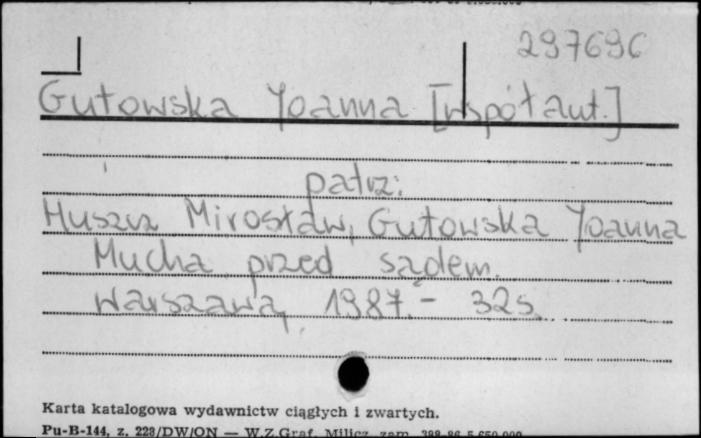 297696
Gutowska Joanna [współaut.]
patrz:
Huszcz Mirosław, Gutowska Joanna
Mucha przed sądem.
Warszawa, 1987. - 32 s.
Karta katalogowa wydawnictw ciągłych i zwartych.
Pu-B-144, z. 228/DW/ON — W.Z.Graf. Milicz zam.